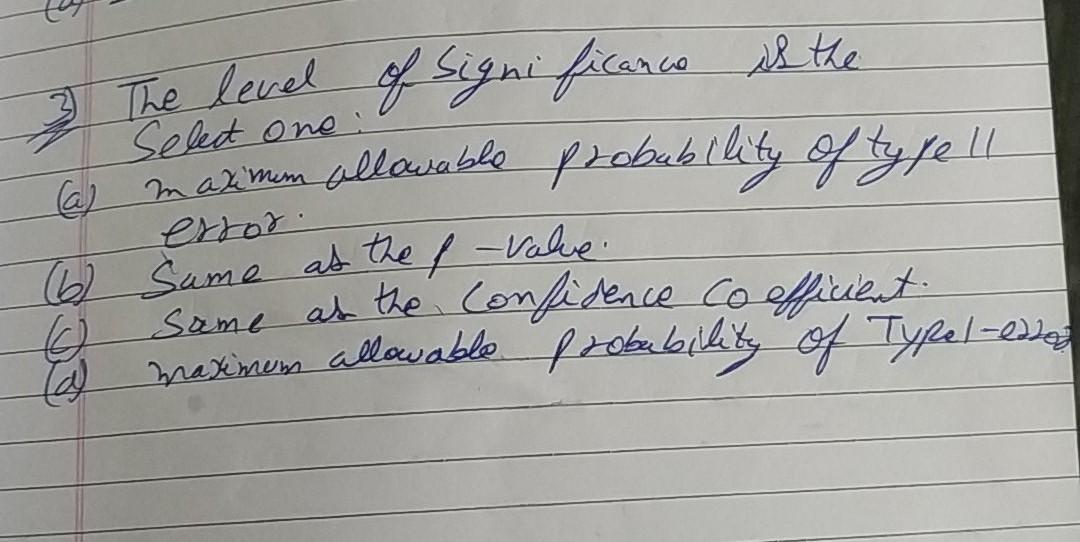 3) The level of Significance is the
Select one:
(a) maximum allowable probability of type II
error.
(b) Same as the p-value.
(c) Same as the Confidence Coefficient.
(d) maximum allowable probability of Type1-error